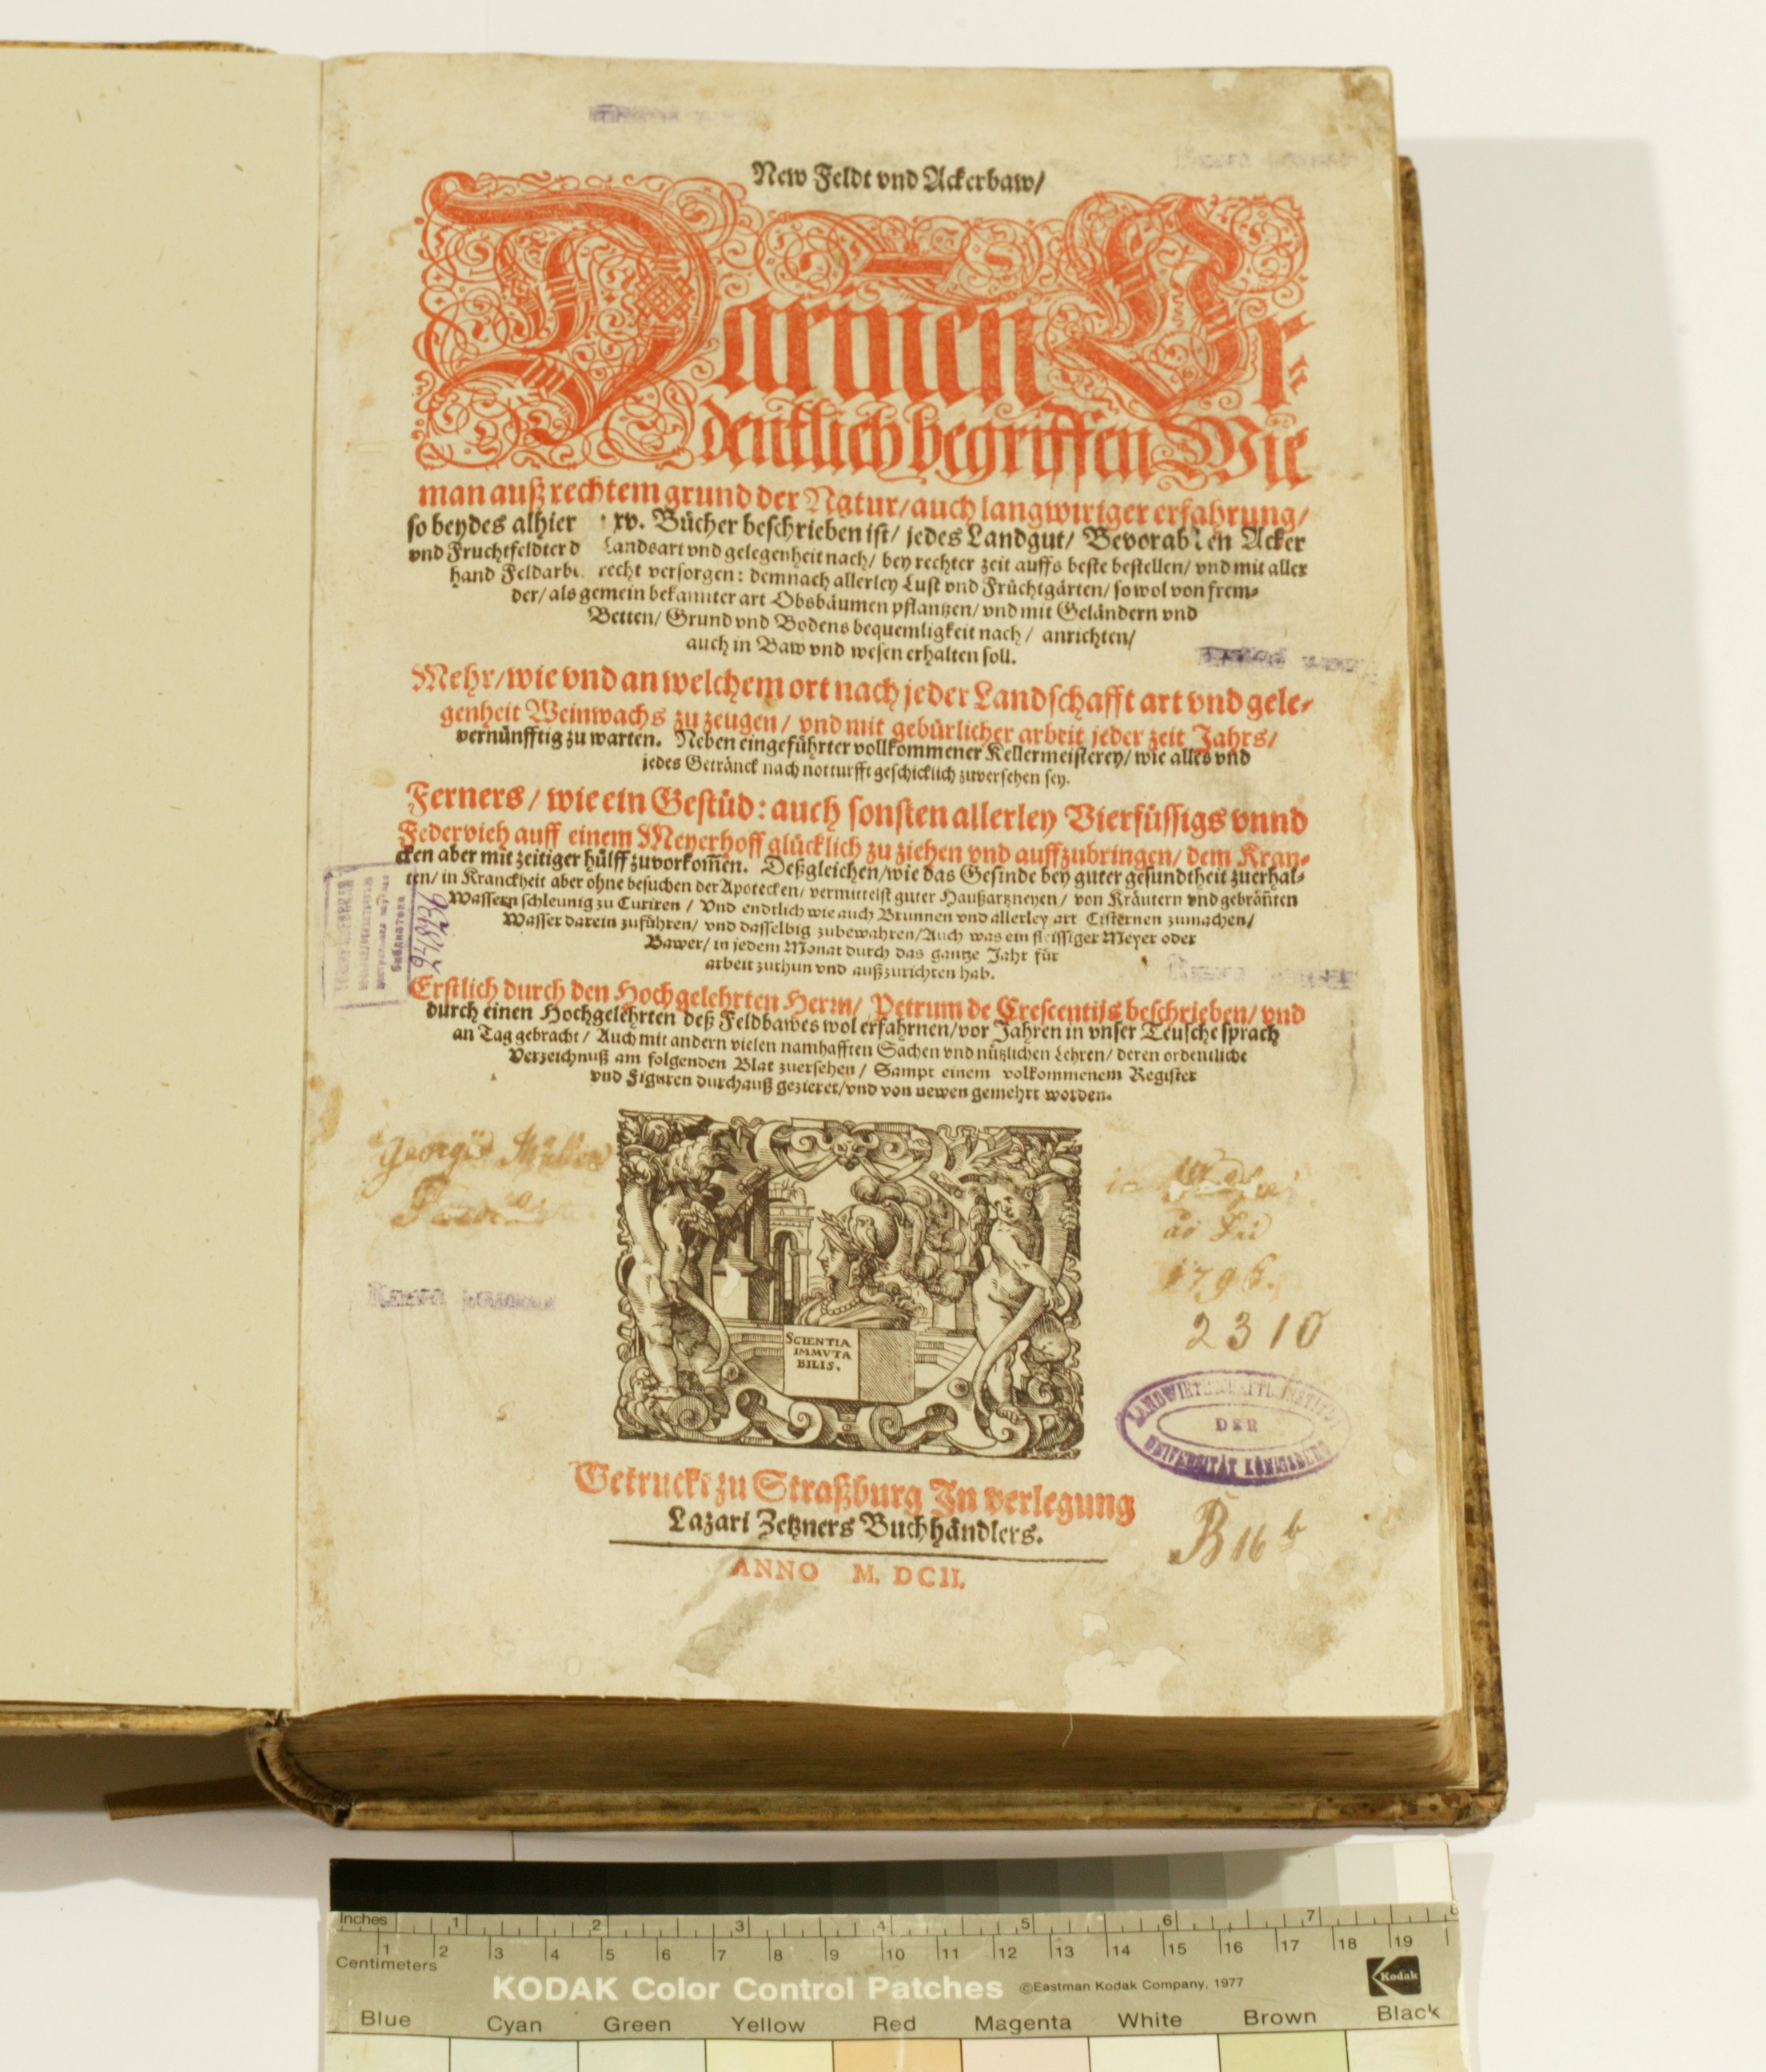 New Feldt vnd Ackerbaw/
Darinen Or-
dentlich begriffen Wie
man auß rechtem grund der Natur/ auch langwiriger erfahrung/
so beydes alhier xv. Bücher beschrieben ist/ jedes Landgut/ Bevorab den Acker
vnd Fruchtfeldter d Landsart vnd gelegenheit nach/ bey rechter zeit auffs beste bestellen/ vnd mit aller
hand Feldarbe recht versorgen: demnach allerley Lust vnd Früchtgärten/ so wol von frem-
der/ als gemein bekannter art Obsbäumen pflantzen/ vnd mit Geländern vnd
Betten/ Grund vnd Bodens bequemligkeit nach/ anrichten/
auch in Baw vnd wesen erhalten soll.
Mehr/ wie vnd an welchem ort nach jeder Landschafft art vnd gele-
genheit Weinwachs zu zeugen/ vnd mit gebürlicher arbeit jeder zeit Jahrs/
vernünfftig zu warten. Neben eingeführter vollkommener Kellermeisterey/ wie alles vnd
jedes Getränck nach notturfft geschicklich zuversehen sey.
Ferners/ wie ein Gestüd: auch sonsten allerley Vierfüssigs vnnd
Federvieh auff einem Meyerhoff glücklich zu ziehen vnd auffzubringen/ dem Kran-
cken aber mit zeitiger hülff zuvorkom̄en. Deßgleichen/ wie das Gesinde bey guter gesundtheit zuerhal-
ten/ in Kranckheit aber ohne besuchen der Apotecken/ vermittelst guter Haußartzneyen/ von Kräutern vnd gebrañten
Wassern schleunig zu Curiren/ Vnd endtlich wie auch Brunnen vnd allerley art Cisternen zumachen/
Wasser darein zuführen/ vnd dasselbig zubewahren/ Auch was ein fleissiger Meyer oder
Bawer/ in jedem Monat durch das gantze Jahr für
arbeit zuthun vnd außzurichten hab.
Erstlich durch den Hochgelehrten Herrn/ Petrum de Crescentijs beschrieben/ vnd
durch einen Hochgelehrten deß Feldbawes wol erfahrnen/ vor Jahren in vnser Teusche sprach
an Tag gebracht/ Auch mit andern vielen namhafften Sachen vnd nützlichen Lehren/ deren ordentliche
Verzeichnuß am folgenden Blat zuersehen/ Sampt einem volkommenem Register
vnd Figuren durchauß gezieret/ vnd von newen gemehrt worden.
библиотека
Georgii
ao Dni
1796.
2310
SCIENTIA
IMMVTA
BILIS.
LANDWIRTSCHAFTL. INSTITUT
DER
UNIVERSITÄT KÖNIGSBERG
Getruckt zu Straßburg In verlegung
Lazari Zetzners Buchhändlers.
B 16 b
ANNO M. DCII.
Inches 1 2 3 4 5 6 7 8
1 2 3 4 5 6 7 8 9 10 11 12 13 14 15 16 17 18 19
Centimeters
KODAK Color Control Patches ©Eastman Kodak Company, 1977 Kodak
Blue Cyan Green Yellow Red Magenta White Brown Black